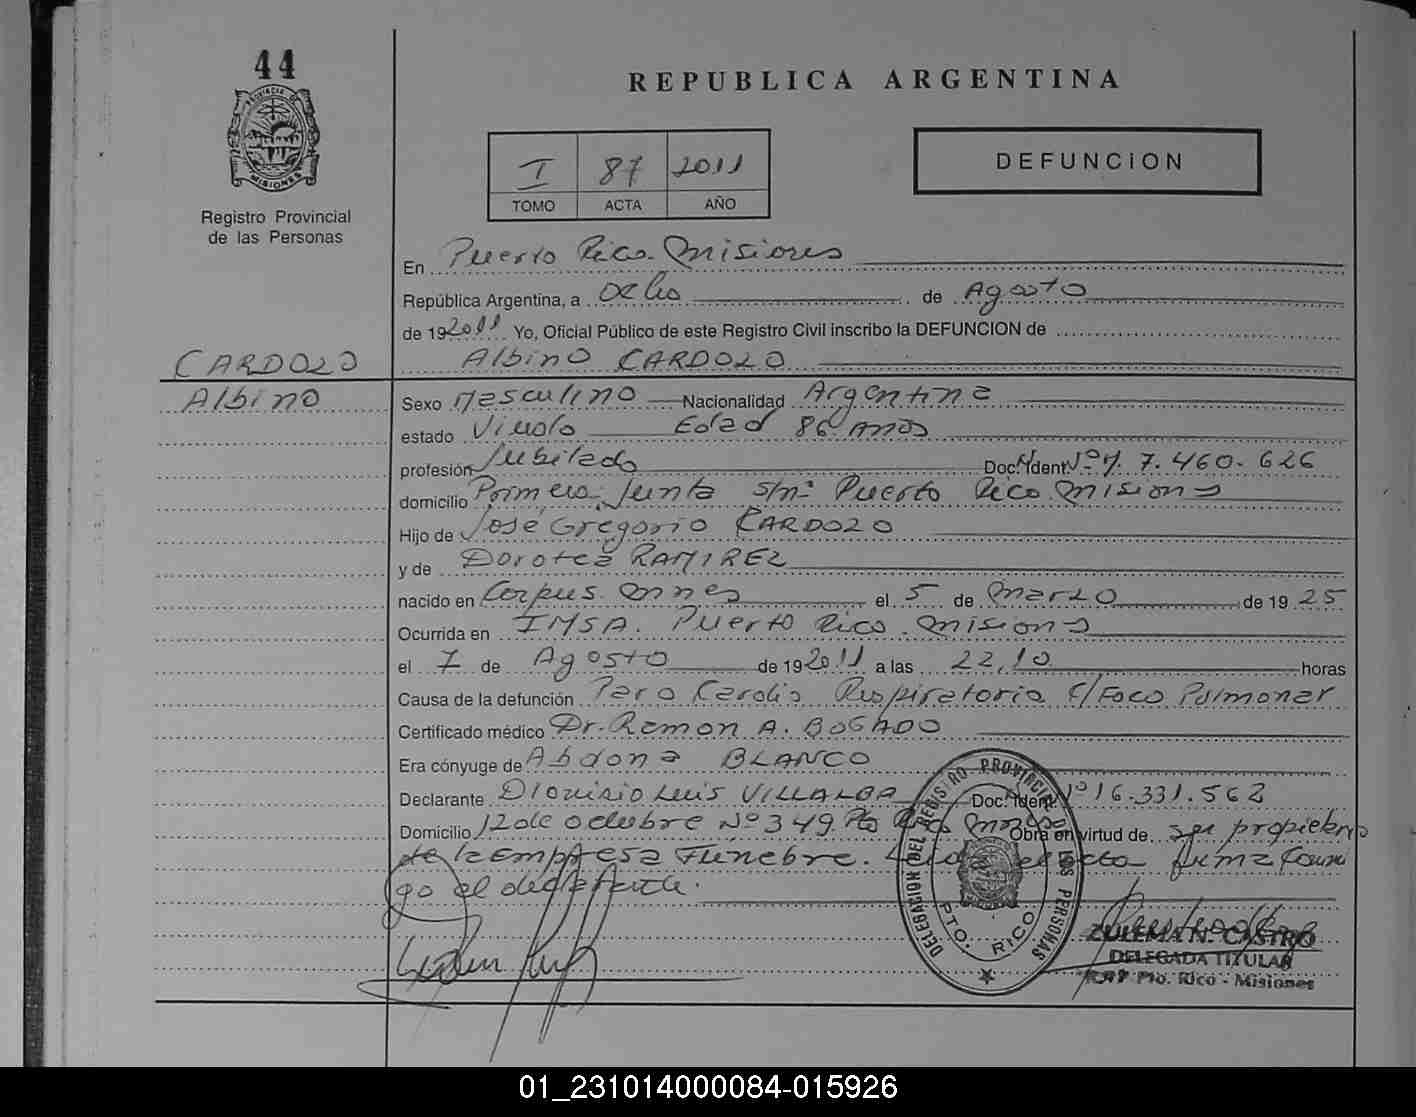 44
PROVINCIA DE
MISIONES
Registro Provincial
de las Personas
REPUBLICA ARGENTINA
I 87 2011
TOMO ACTA AÑO
DEFUNCION
En Puerto Rico Misiones
República Argentina, a ocho de Agosto
de 192011 Yo, Oficial Público de este Registro Civil inscribo la DEFUNCION de
CARDOZO Albino CARDOZO
Albino Sexo Masculino Nacionalidad Argentina
estado Viudo Edad 86 años
profesión Jubilado Doc. Ident. Nº M. 7.460.626
domicilio Primera Junta s/nº Puerto Rico Misiones
Hijo de José Gregorio CARDOZO
y de Dorotea RAMIREZ
nacido en Corpus Mnes el 5 de Marzo de 1925
Ocurrida en IMSA. Puerto Rico. Misiones
el 7 de Agosto de 192011 a las 22,10 horas
Causa de la defunción Paro Cardio Respiratorio C/Foco Pulmonar
Certificado médico Dr. Ramon A. BOGADO
Era cónyuge de Abdona BLANCO
Declarante Dionisio Luis VILLALBA Doc. Ident. Nº 16.331.562
Domicilio 12 de octubre Nº 349 Pto Rico Mnes Obra en virtud de ser propietario
de la Empresa Fúnebre. Leida el acta firma conmi
go el declarante.
DELEGACION DEL REGISTRO PROVINCIAL DE LAS PERSONAS
PTO. RICO
ZULEMA N. CASTRO
DELEGADA TITULAR
Pto. Rico - Misiones
01_231014000084-015926